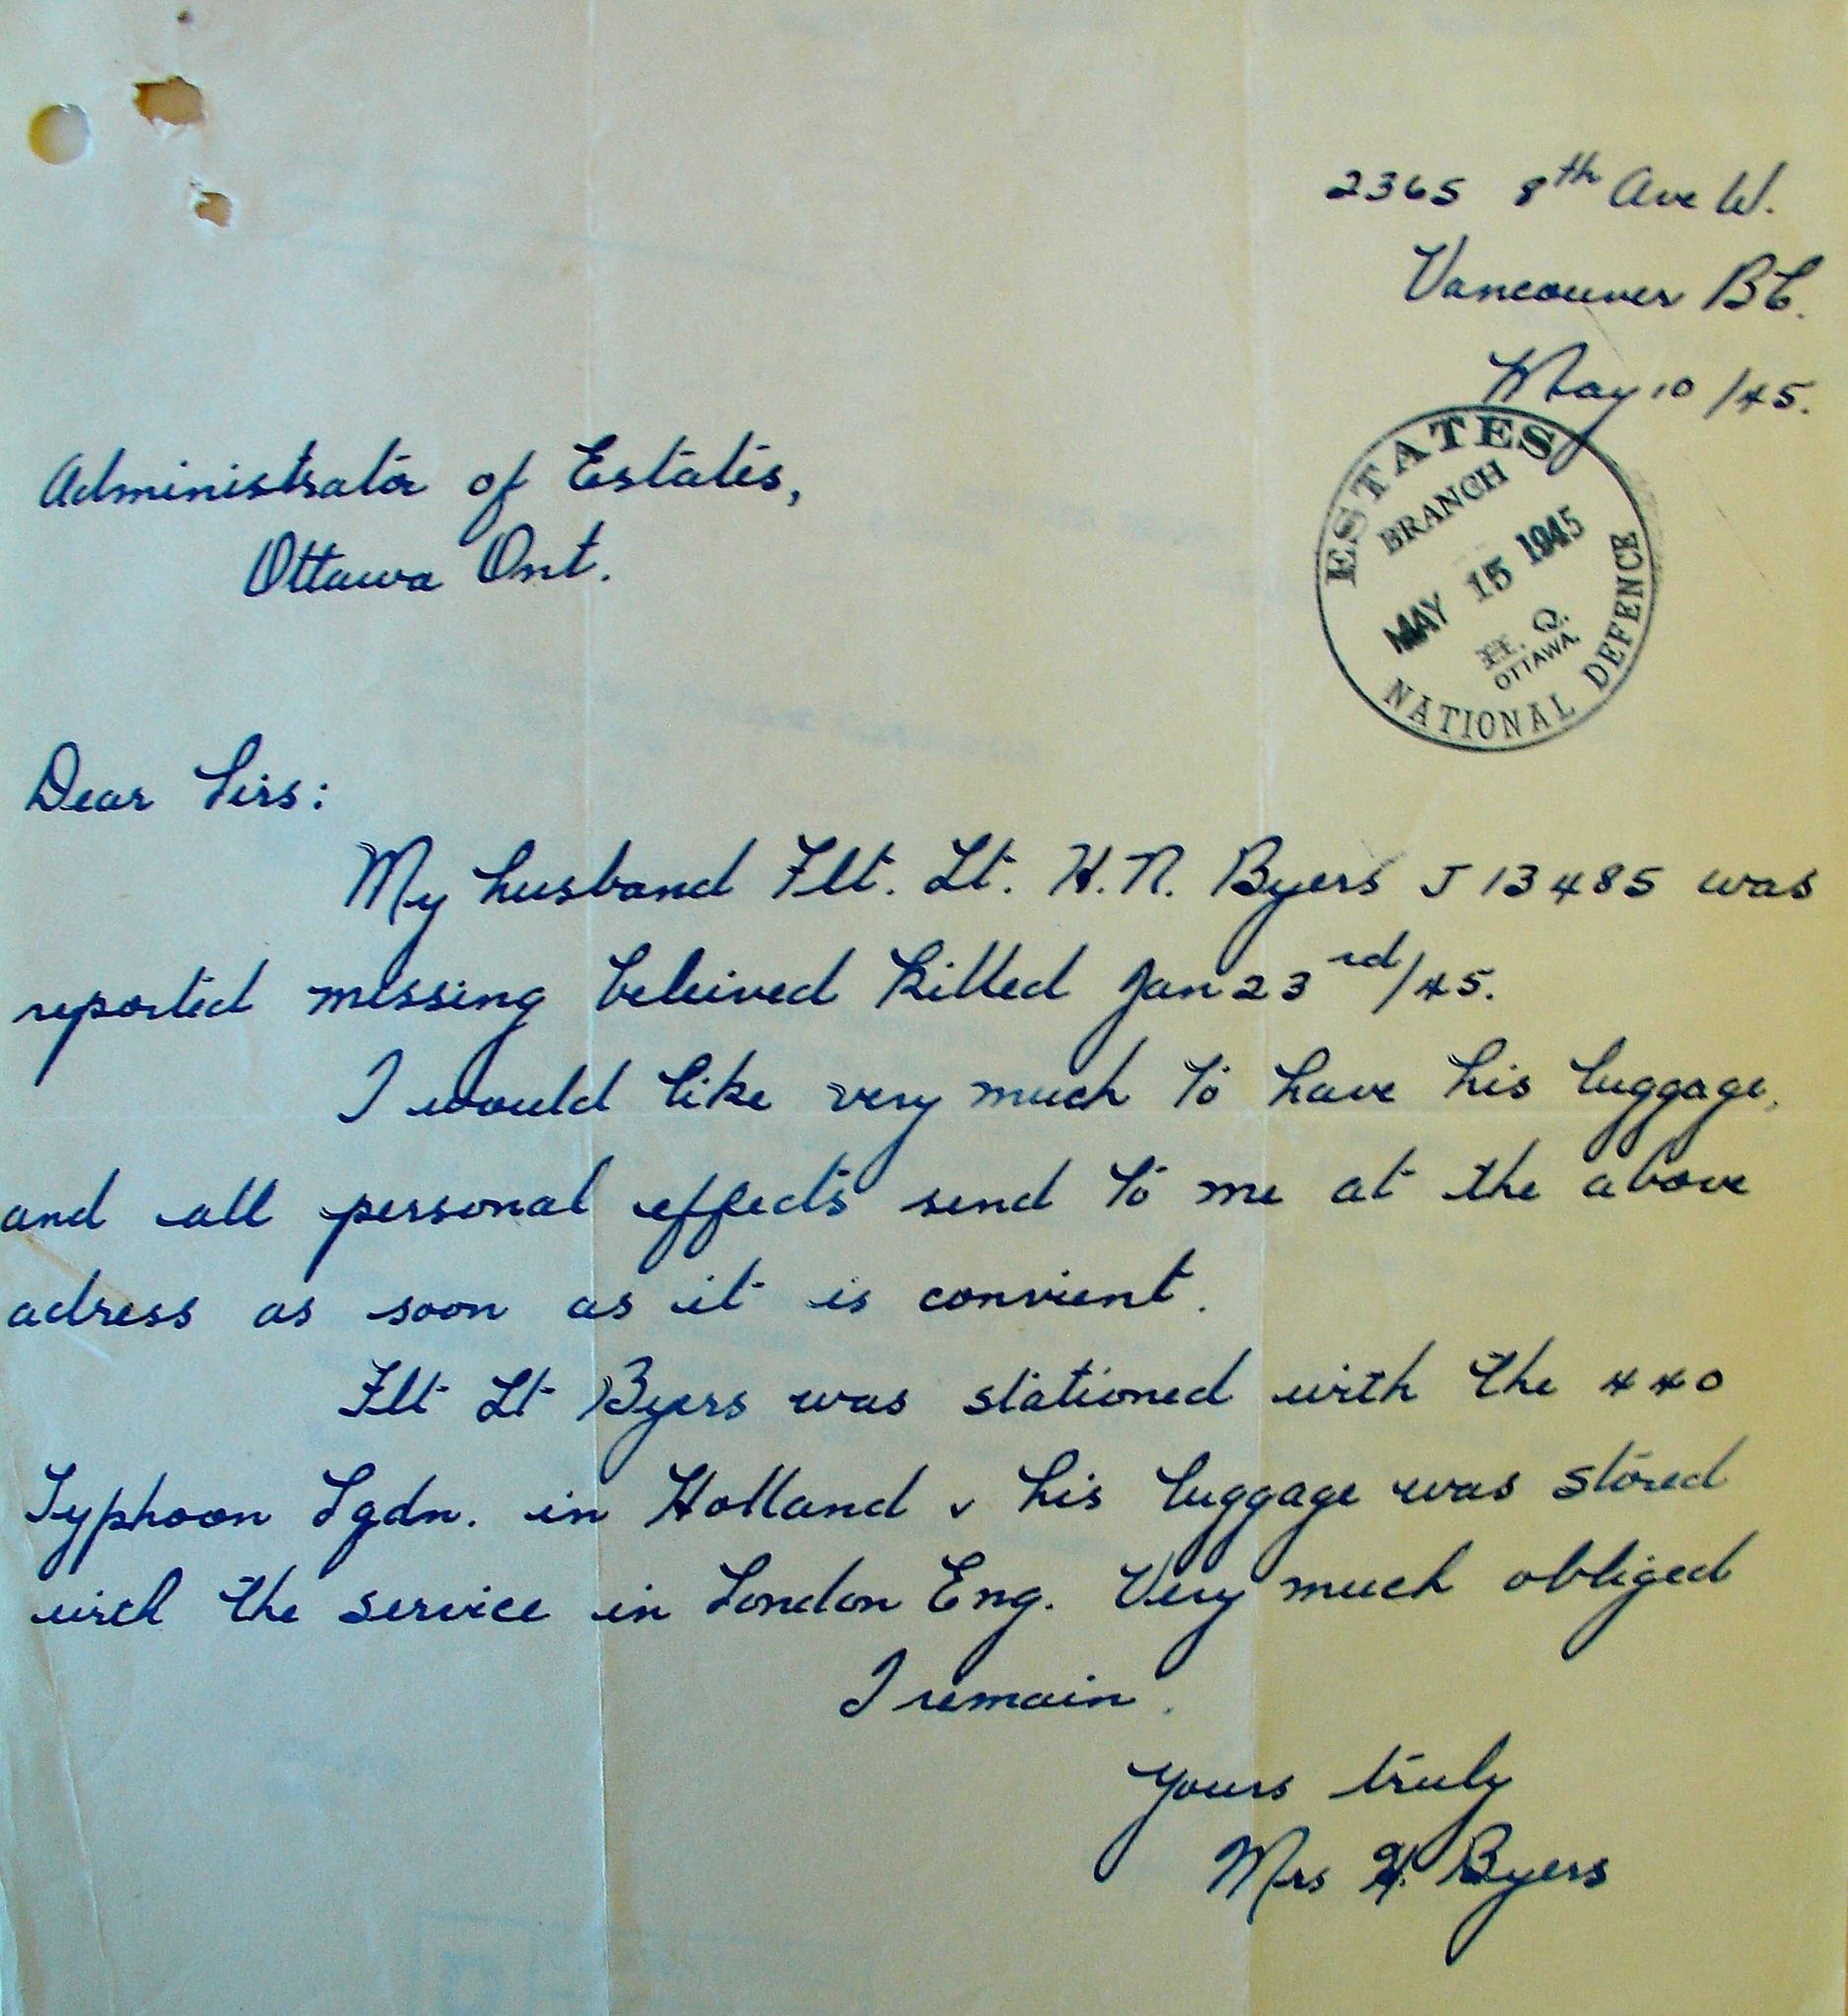 2365 8th Ave W.
Vancouver BC.
May 10/45.
ESTATES
BRANCH
MAY 15 1945
H. Q.
OTTAWA.
NATIONAL DEFENCE
Administrator of Estates,
Ottawa Ont.
Dear Sirs:
My husband Flt. Lt. H. N. Byers J 13485 was
reported missing beleived killed Jan 23rd/45.
I would like very much to have his luggage,
and all personal effects send to me at the above
adress as soon as it is convient.
Flt Lt Byers was stationed with the 440
Typhoon Sqdn. in Holland & his luggage was stored
with the service in London Eng. Very much obliged
I remain.
Yours truly
Mrs H. Byers